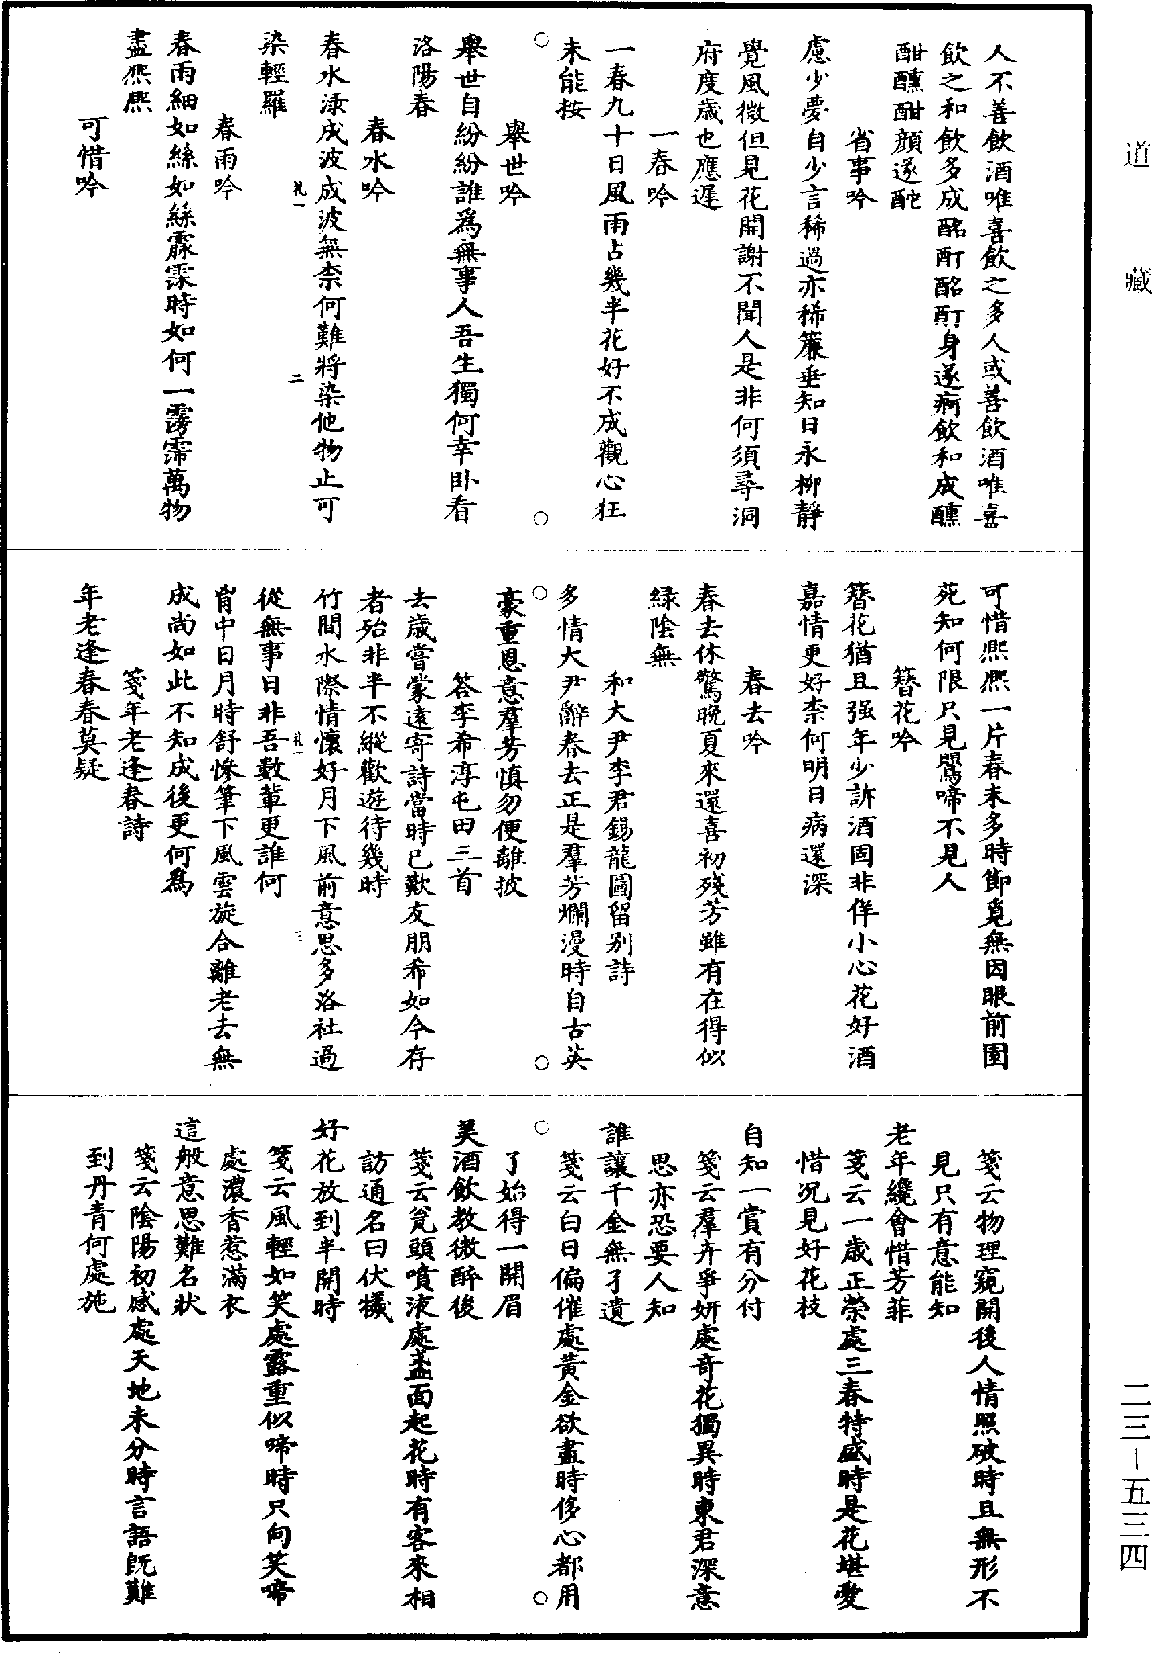 道藏
人不善飲酒唯喜飲之多人或善飲酒唯喜
飲之和飲多成酩酊酩酊身遂痾飲和成醺
酣醺酣顏遂酡
省事吟
慮少夢自少言稀過亦稀簾垂知日永柳靜
覺風微但見花開謝不聞人是非何須尋洞
府度歲也應遲
一春吟
一春九十日風雨占幾半花好不成觀心狂
未能按
舉世吟
舉世自紛紛誰為無事人吾生獨何幸臥看
洛陽春
春水吟
春水淥成波成波無柰何難將染他物止可
染輕羅
春雨吟
春雨細如絲如絲霡霂時如何一霶霈萬物
盡熈熈
可惜吟
可惜熈熈一片春末多時節覓無因眼前園
苑知何限只見鸎啼不見人
簪花吟
簪花猶且强年少訴酒固非佯小心花好酒
嘉情更好柰何明日病還深
春去吟
春去休驚晚夏來還喜初殘芳雖有在得似
綠陰無
和大尹李君錫龍圖留別詩
多情大尹辭春去正是羣芳爛漫時自古英
豪重恩意羣芳慎勿便離披
答李希淳屯田三首
去歲嘗蒙遠寄詩當時已歎友朋希如今存
者殆非半不縱歡遊待幾時
竹間水際情懷好月下風前意思多洛社過
從無事日非吾數輩更誰何
胷中日月時舒慘筆下風雲旋合離老去無
成尚如此不知成後更何為
箋年老逢春詩
年老逢春春莫疑
箋云物理窺開後人情照破時且無形不
見只有意能知
老年纔會惜芳菲
箋云一歲正榮處三春特盛時是花堪愛
惜況見好花枝
自知一賞有分付
箋云羣卉爭妍處竒花獨異時東君深意
思亦恐要人知
誰讓千金無孑遺
箋云白日偏催處黃金欲盡時侈心都用
了始得一開眉
美酒飲教微醉後
箋云瓮頭噴液處盞面起花時有客來相
訪通名曰伏犧
好花放到半開時
箋云風輕如笑處露重似啼時只向笑啼
處濃香惹滿衣
這般意思難名狀
箋云陰陽初感處天地未分時言語旣難
到丹青何處施
二三－五三四